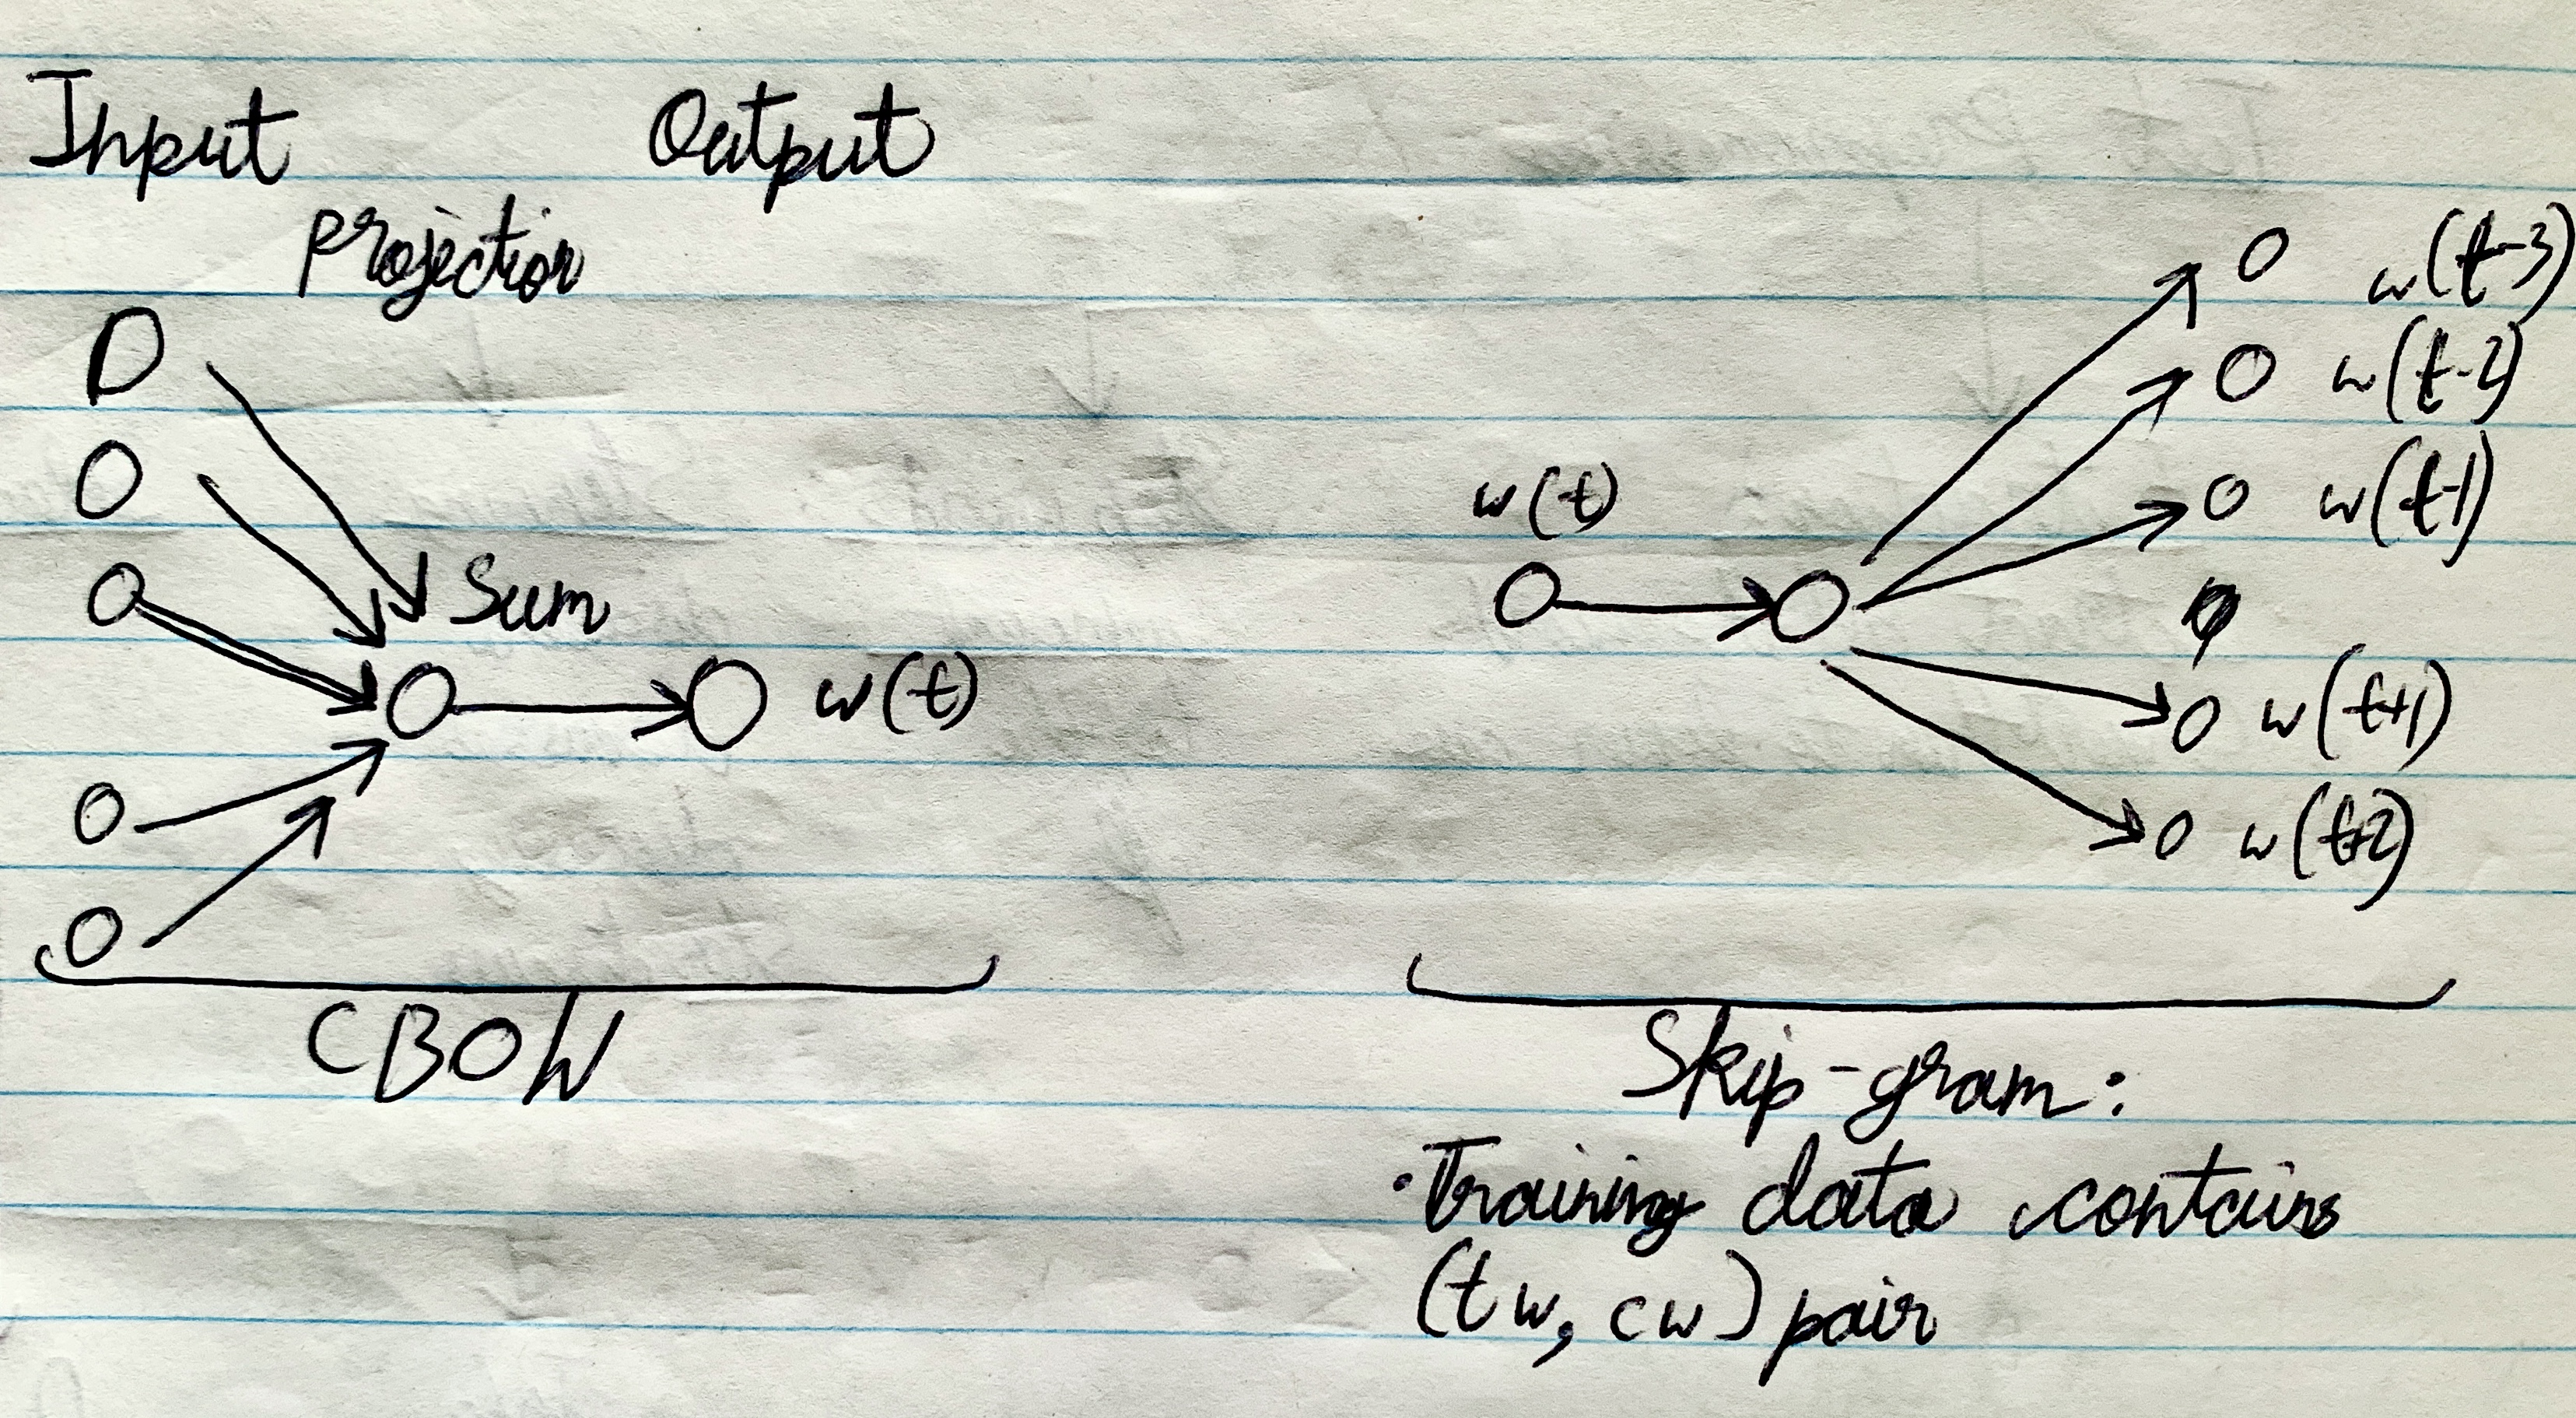 Input Output
Projection
w(t-3)
w(t-2)
w(t-1)
w(t)
Sum
w(t)
w(t+1)
w(t+2)
CBOW
Skip-gram:
• Training data contains
(tw, cw) pair